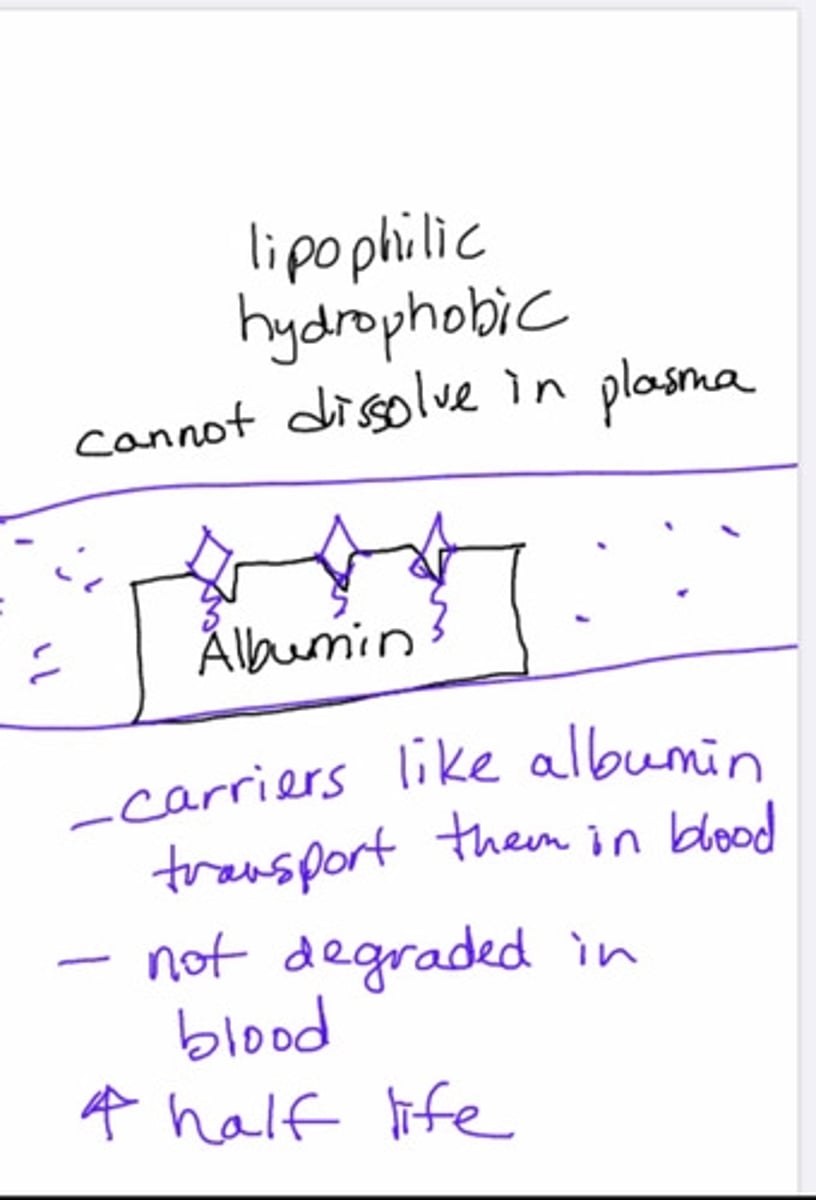 lipophilic
hydrophobic
cannot dissolve in plasma
Albumin
- carriers like albumin
transport them in blood
- not degraded in
blood
↑ half life